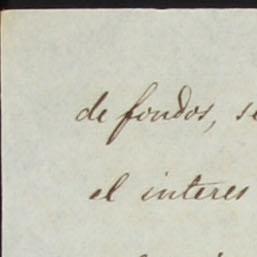 de fondos, se
el interes